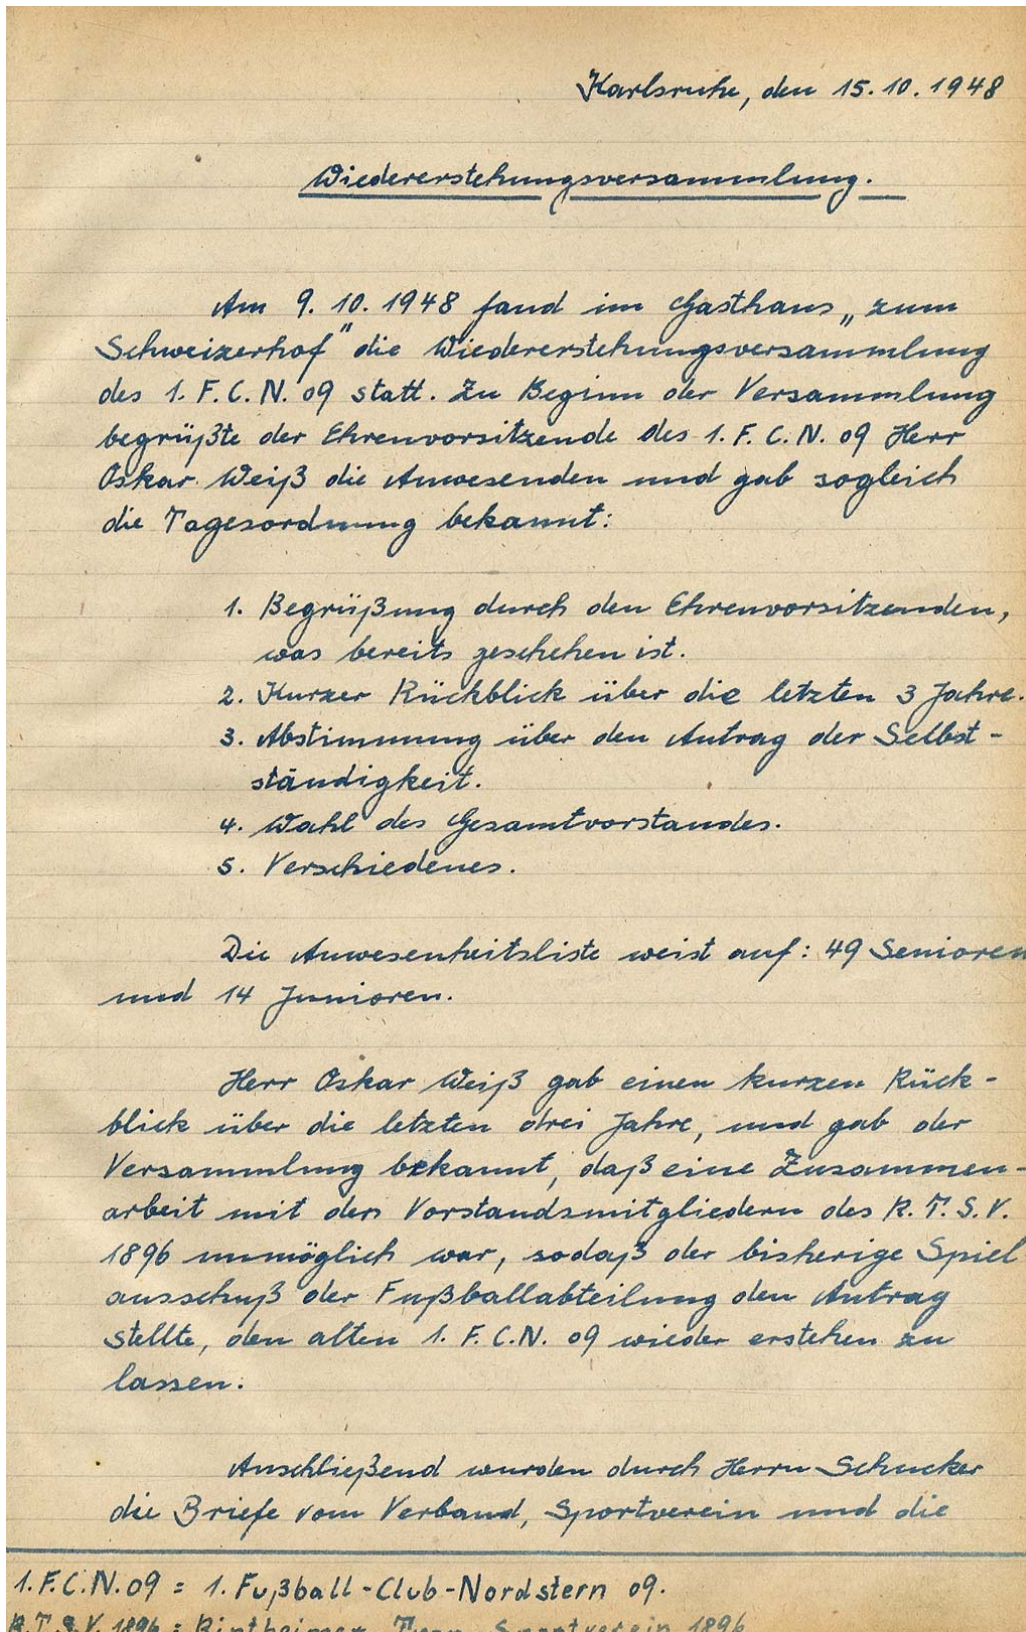 Karlsruhe, den 15.10.1948
Wiedererstehungsversammlung.
Am 9.10.1948 fand im Gasthaus „zum
Schweizerhof" die Wiedererstehungsversammlung
des 1. F.C.N. 09 statt. Zu Beginn der Versammlung
begrüßte der Ehrenvorsitzende des 1. F.C.N. 09 Herr
Oskar Weiß die Anwesenden und gab sogleich
die Tagesordnung bekannt:
1. Begrüßung durch den Ehrenvorsitzenden,
was bereits geschehen ist.
2. Kurzer Rückblick über die letzten 3 Jahre.
3. Abstimmung über den Antrag der Selbst-
ständigkeit.
4. Wahl des Gesamtvorstandes.
5. Verschiedenes.
Die Anwesenheitsliste weist auf: 49 Senioren
und 14 Junioren.
Herr Oskar Weiß gab einen kurzen Rück-
blick über die letzten drei Jahre, und gab der
Versammlung bekannt, daß eine Zusammen-
arbeit mit den Vorstandsmitgliedern des R.T.S.V.
1896 unmöglich war, sodaß der bisherige Spiel
ausschuß der Fußballabteilung den Antrag
stellte, den alten 1. F.C.N. 09 wieder erstehen zu
lassen.
Anschließend wurden durch Herrn Schucker
die Briefe vom Verband, Sportverein und die
1.F.C.N.09 = 1. Fußball-Club-Nordstern 09.
R.T.S.V. 1896 = Rintheimer Turn Sportverein 1896